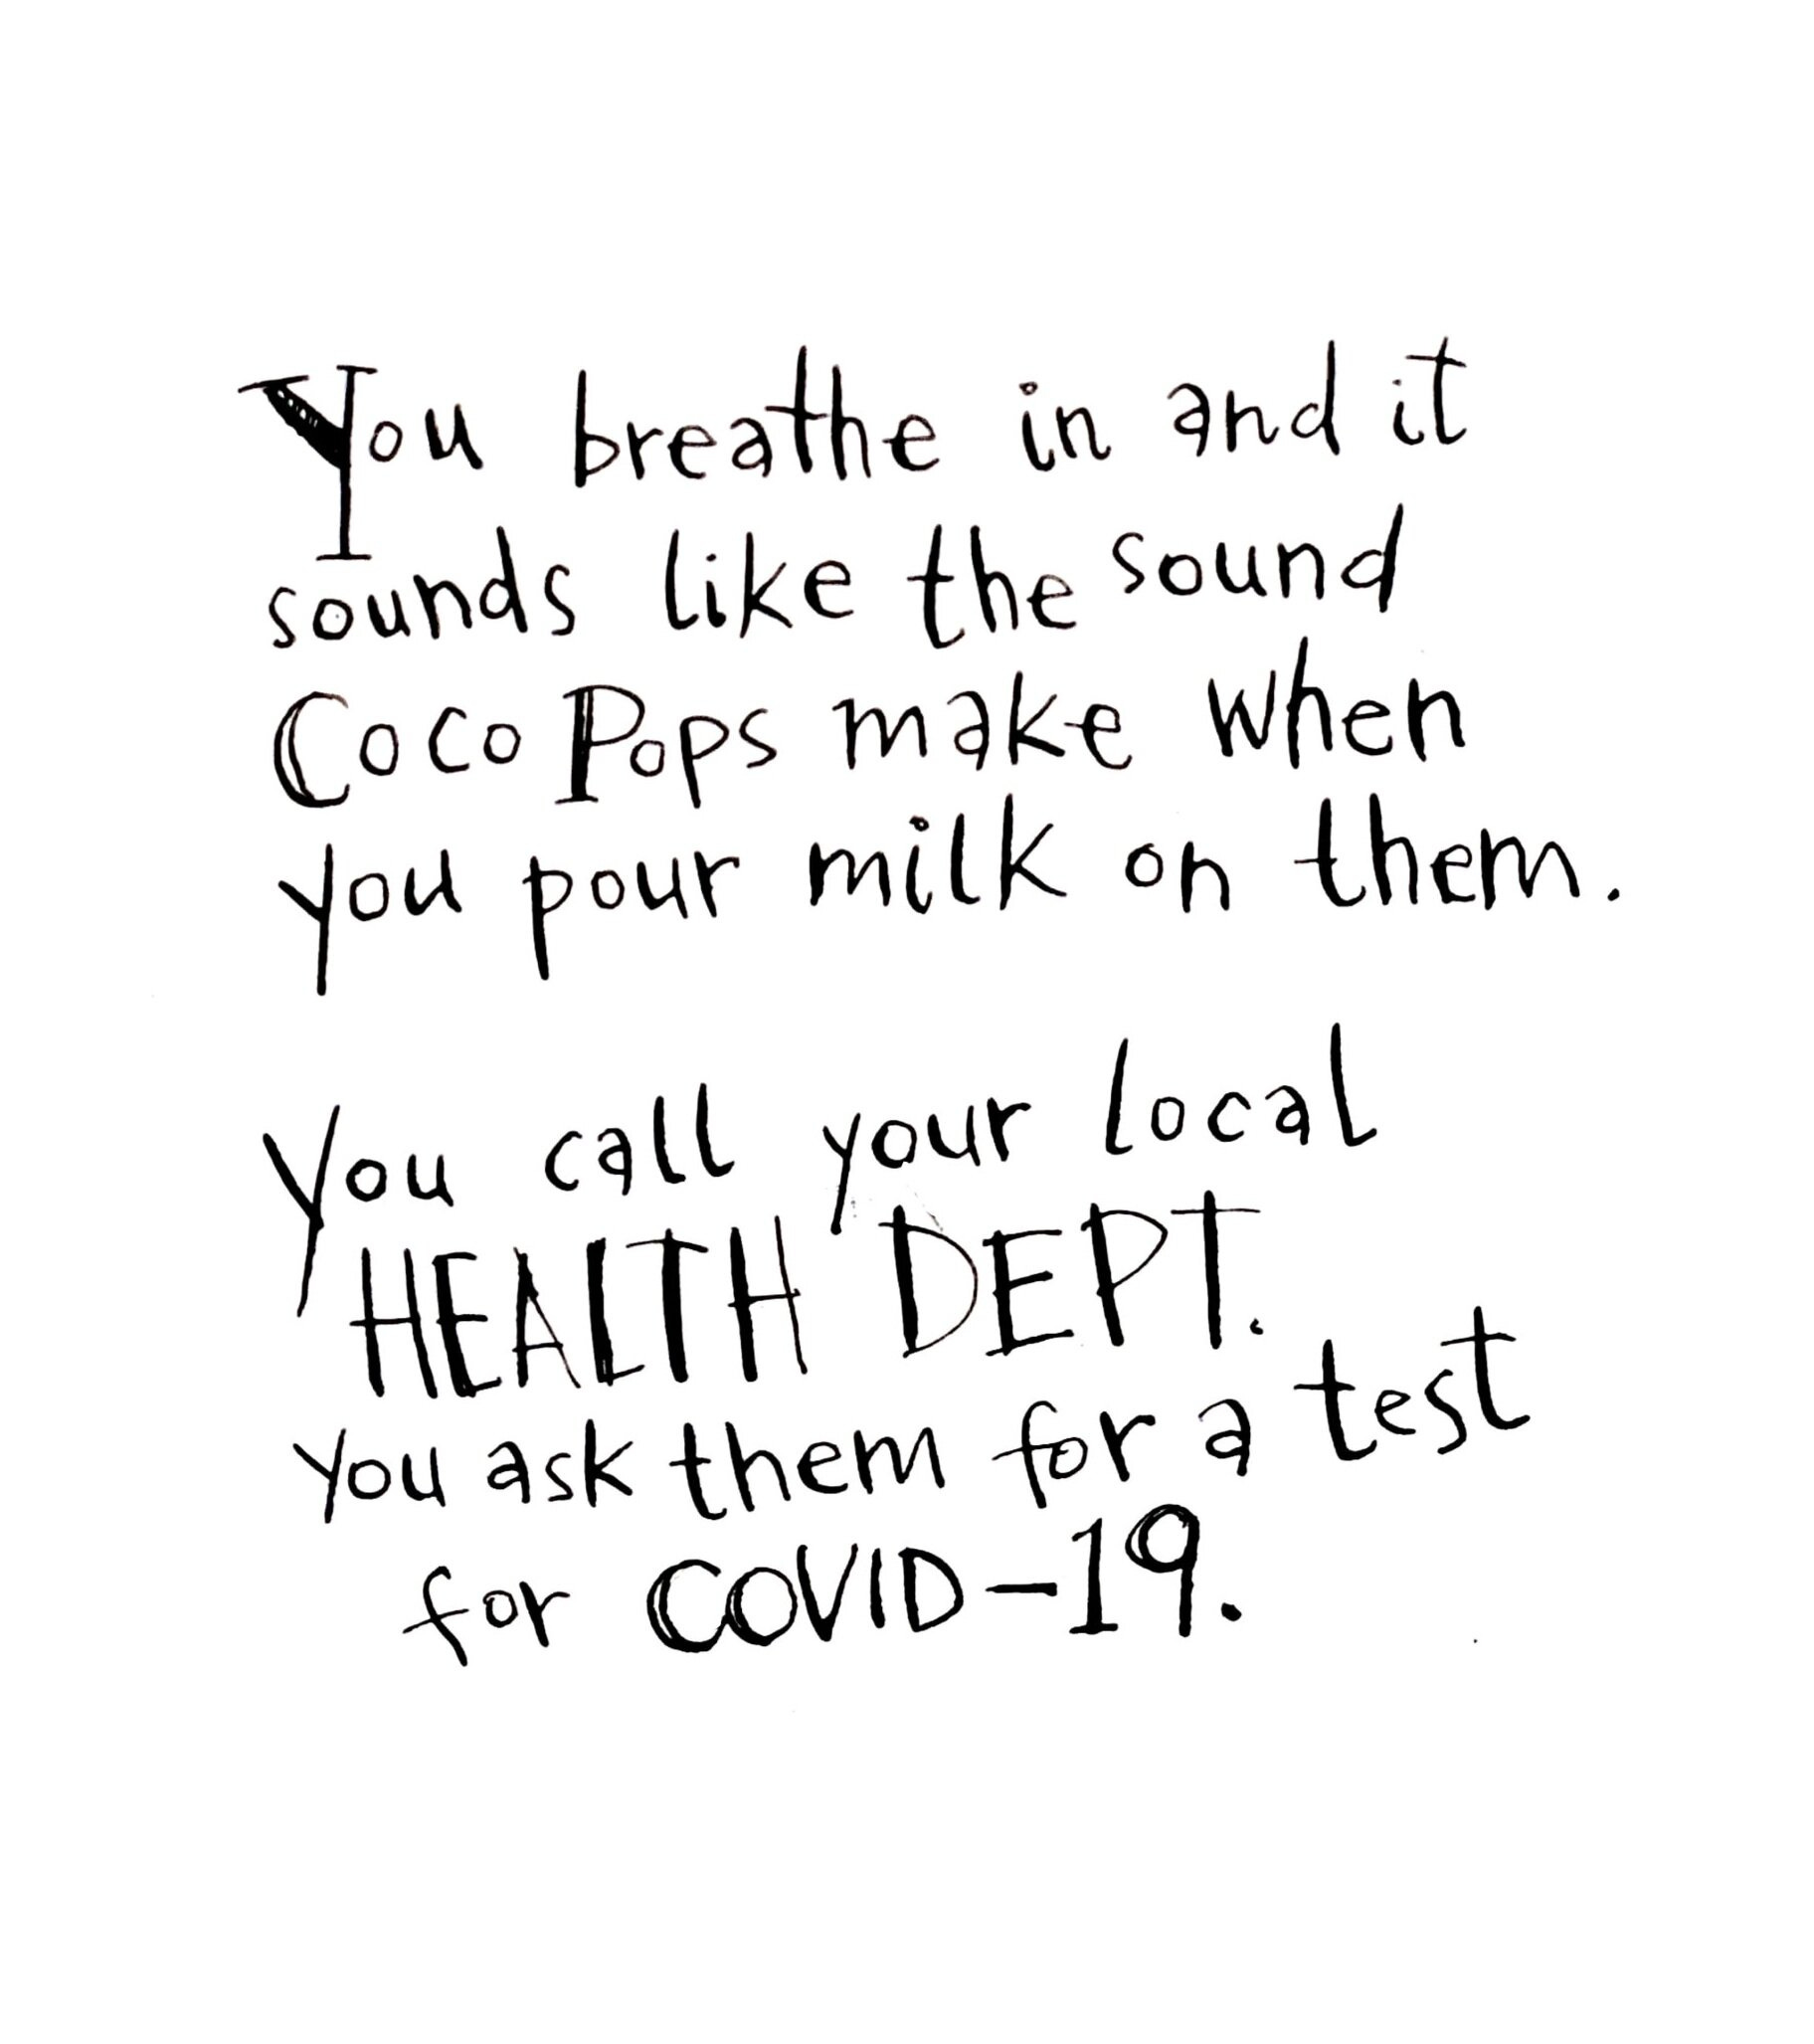 You breathe in and it
sounds like the sound
Coco Pops make when
you pour milk on them.
You call your local
HEALTH DEPT.
you ask them for a test
for COVID-19.